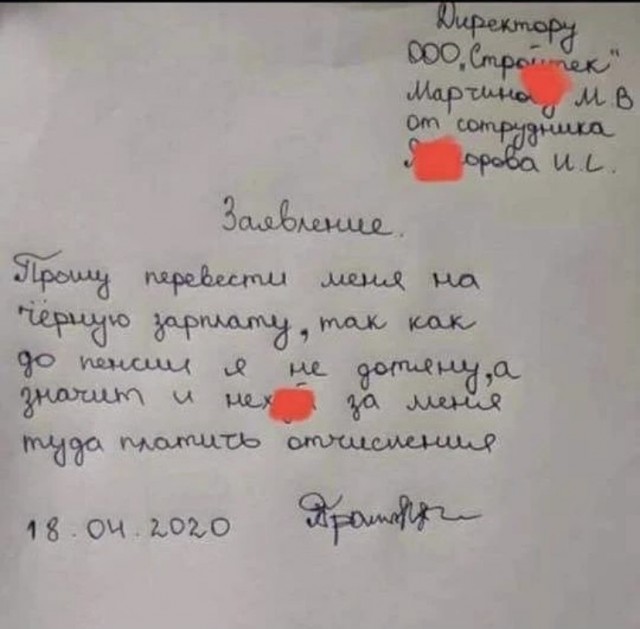 Директору
ООО "Стройтек"
М.В
от сотрудника
И.С.
Заявление.
Прошу перевести меня на
чёрную зарплату, так как
до пенсии я не дотяну, а
значит и за меня
туда платить отчисления
18.04.2020